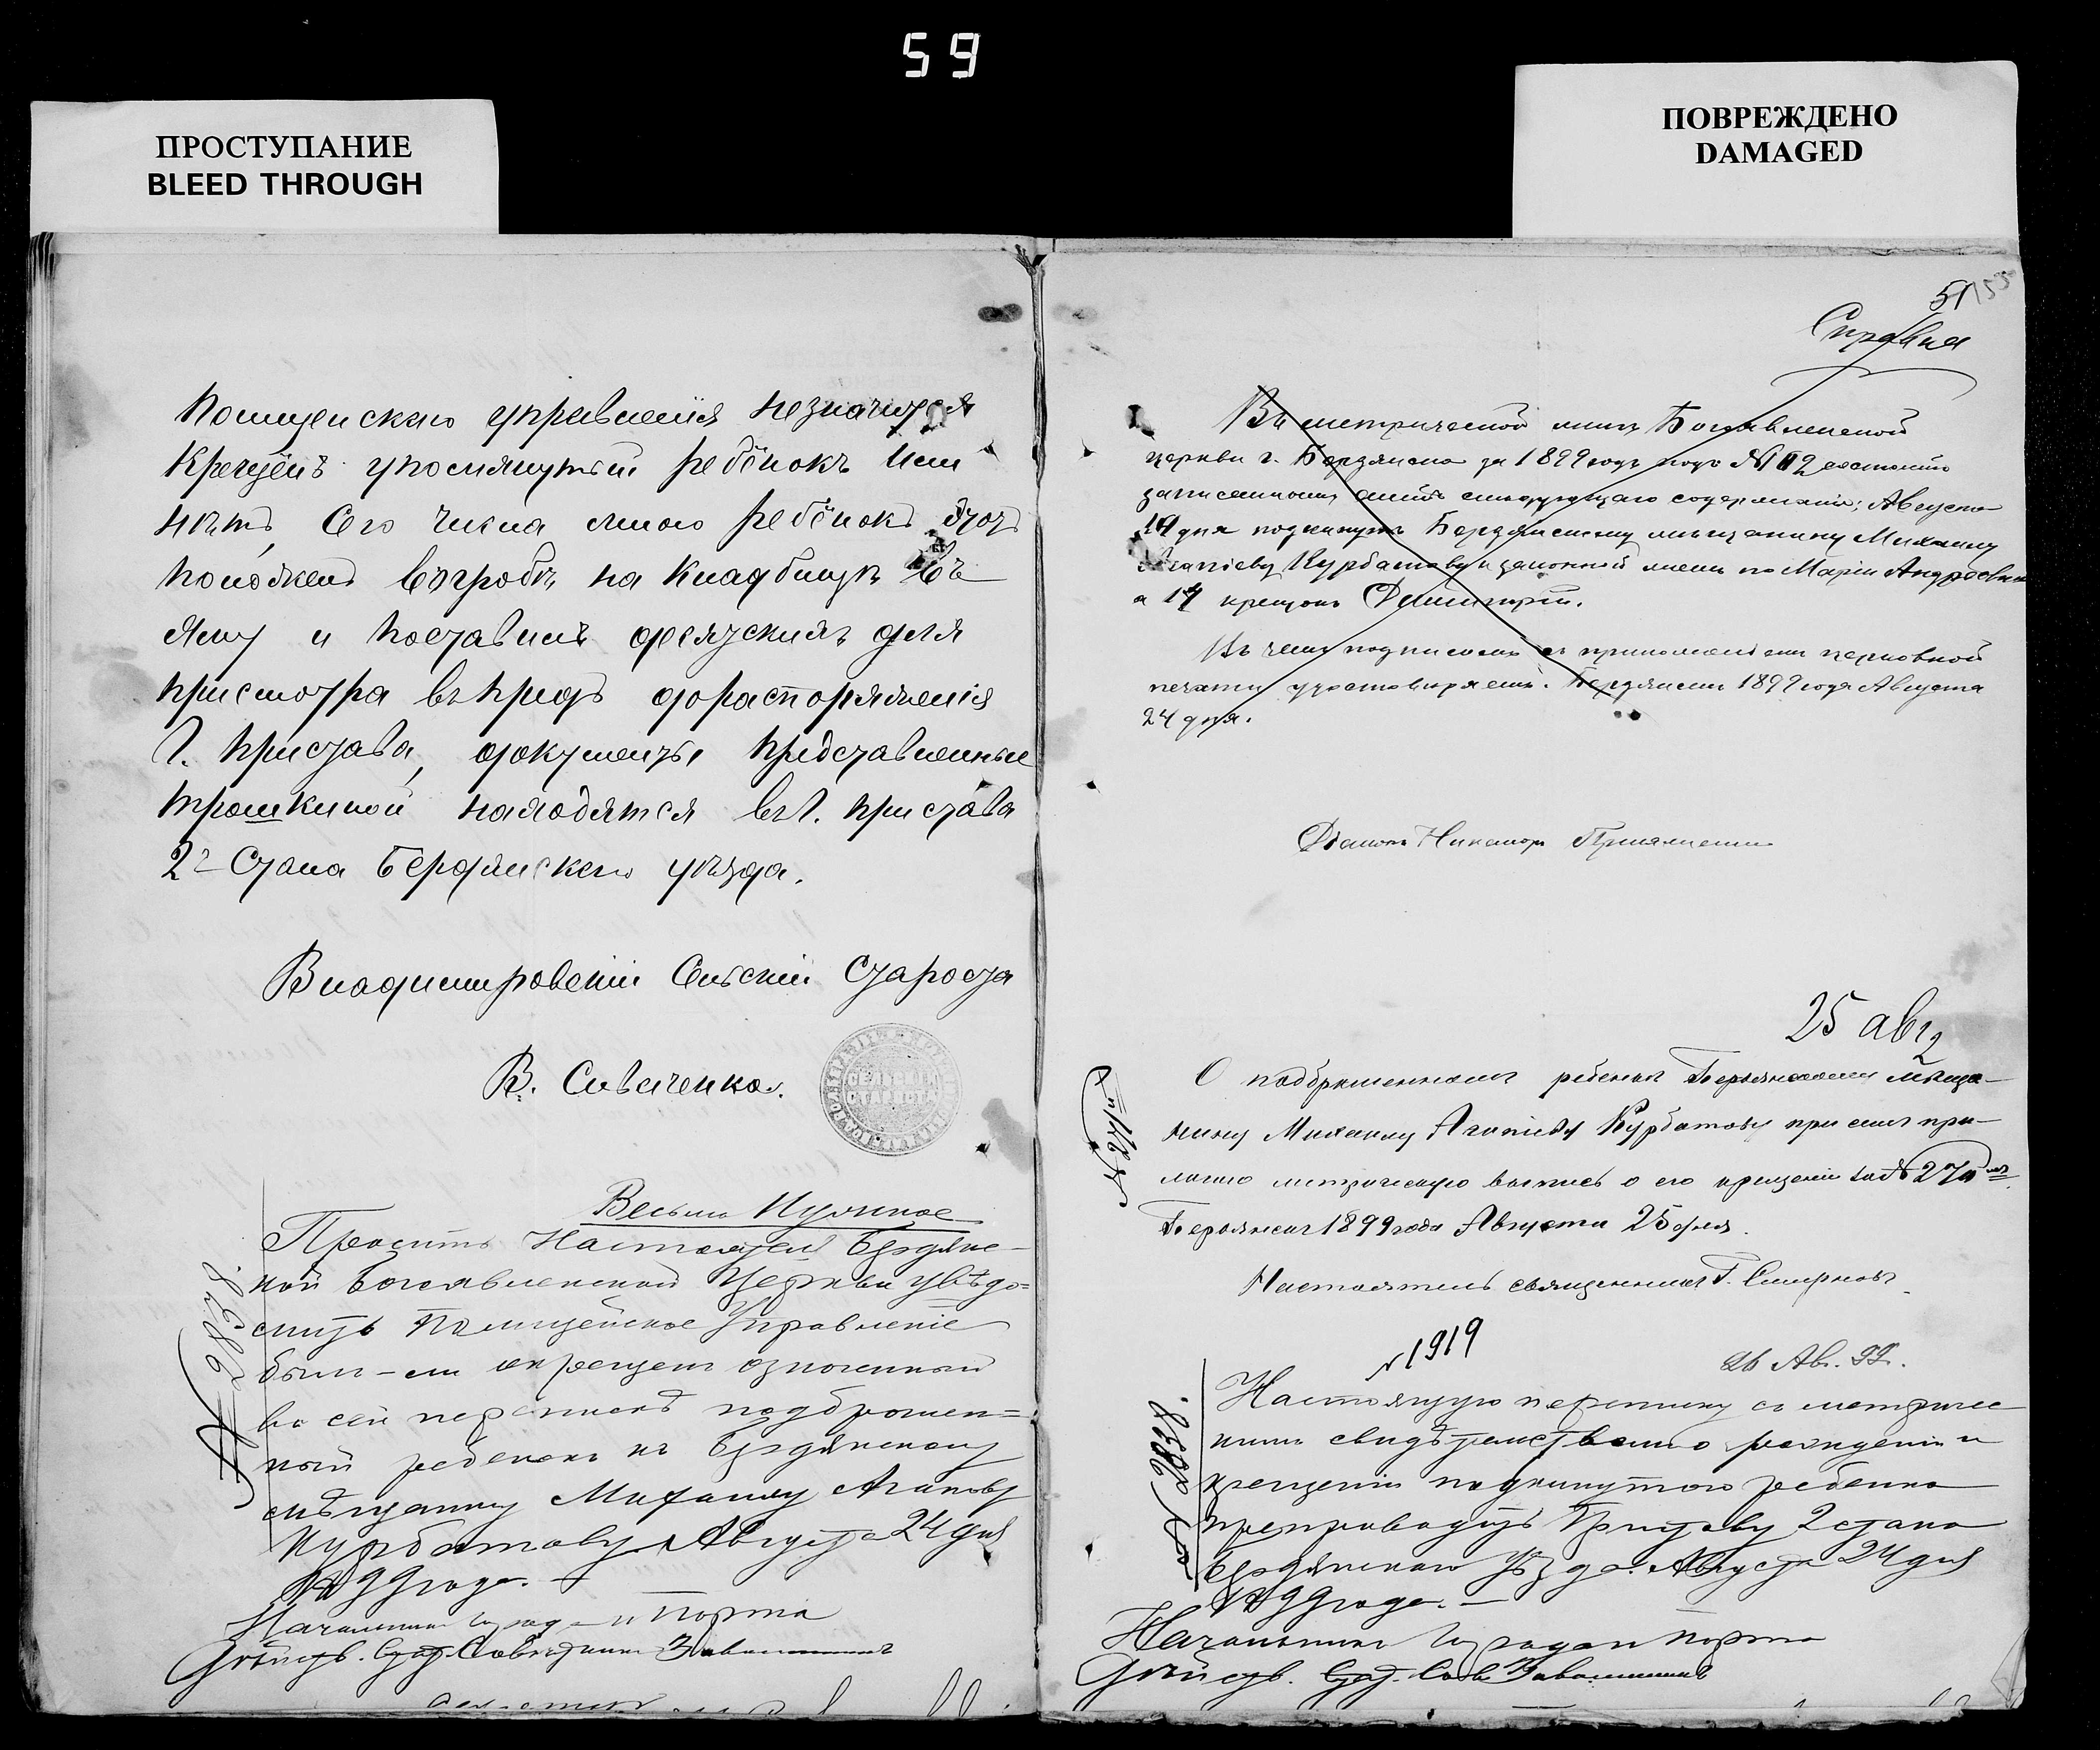 59
ПРОСТУПАНИЕ
BLEED THROUGH
ПОВРЕЖДЕНО
DAMAGED
Полицейскаго управленія незначится
Крещенъ упомянутый ребёнокъ или
нѣтъ, Сего числа ребёнокъ этотъ
положенъ въ гробъ, на Кладбищѣ въ
Яму и поставилъ десятскихъ для
присмотра впредь до распоряженія
Г. Пристава, документы представленные
Трошкиной находятся въ Г. Пристава
2го Стана Бердянскаго уѣзда.
Владимировскій Сельскій Староста
В. Савченко.
СЕЛЬСКІЙ
СТАРОСТА
Весьма Нужное
Просить Настоятеля Бердянс-
кой Богоявленской Церкви увѣдо-
мить Полицейское Управленіе
былъ-ли окрещенъ означенный
въ сей перепискѣ подброшен-
ный ребенокъ къ Бердянскому
мѣщанину Михаилу Агапову
Курбатову. Августа 24 дня
1899 года. —
Начальникъ города и порта
Дѣйств. Стат. Совѣтникъ
51
Справка
Въ метрической книгѣ Богоявленской
церкви г. Бердянска за 1899 годъ подъ № состоитъ
записаннымъ актъ слѣдующаго содержанія: Августа
14 дня подкинутъ Бердянскому мѣщанину Михаилу
Агапіеву Курбатову и законной женѣ его Маріи Андреевнѣ
а 17 крещенъ Димитрій.
Въ чемъ подписомъ съ приложеніемъ церковной
печати удостовѣряемъ. Бердянскъ 1899 года Августа
24 дня.
Діаконъ Никаноръ
25 авг
О подброшенномъ ребенкѣ Бердянскому мѣща-
нину Михаилу Агапіеву Курбатову при семъ при-
лагаю метрическую выпись о его крещеніи за № 270
Бердянскъ 1899 года Августа 25 дня.
Настоятель священникъ Г. Смирновъ
№ 1919
26 Ав. 99.
Настоящую переписку съ метричес-
кимъ свидѣтельствомъ о рожденіи и
крещеніи подкинутаго ребенка
препроводить Приставу 2 стана
Бердянскаго Уѣзда. Августа 24 дня
1899 года. —
Начальникъ города и порта
Дѣйств. Стат. Сов.